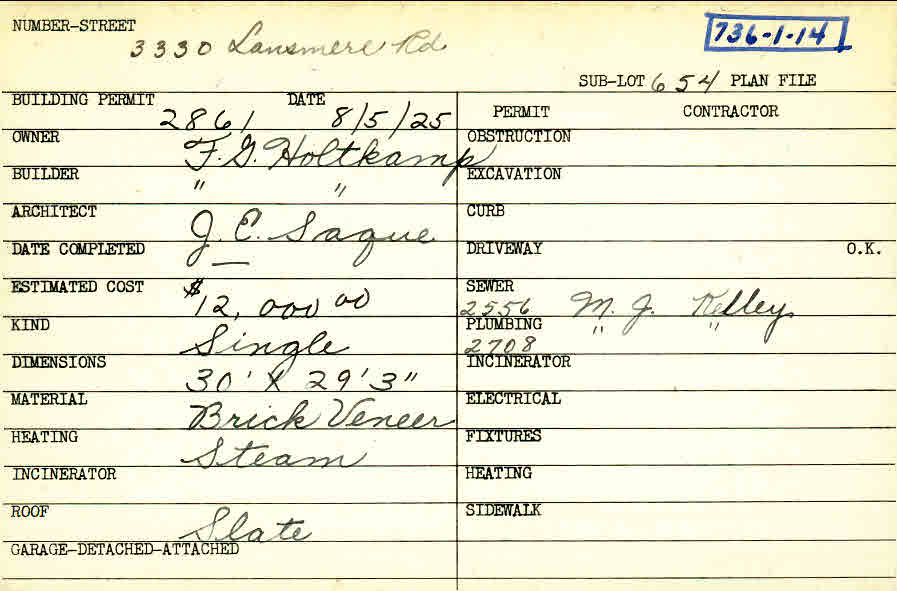 NUMBER-STREET
3330 Lansmere Rd
736-1-14
SUB-LOT 654 PLAN FILE
BUILDING PERMIT DATE
2861 8/5/25
PERMIT CONTRACTOR
OWNER F. G. Holtkamp
OBSTRUCTION
BUILDER " "
EXCAVATION
ARCHITECT J. E. Saque
CURB
DATE COMPLETED —
DRIVEWAY O.K.
ESTIMATED COST $12,000 00
SEWER
2556 M. J. Kelley
KIND Single
PLUMBING " "
2708
DIMENSIONS 30' X 29'3"
INCINERATOR
MATERIAL Brick Veneer
ELECTRICAL
HEATING Steam
FIXTURES
INCINERATOR
HEATING
ROOF Slate
SIDEWALK
GARAGE-DETACHED-ATTACHED